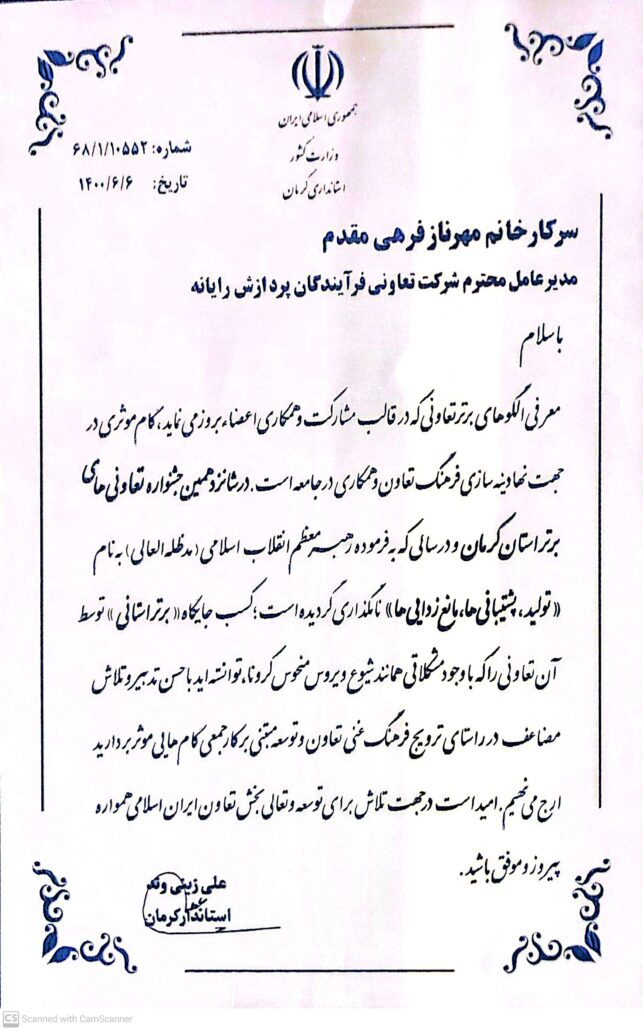 جمهوری اسلامی ایران
وزارت کشور
استانداری کرمان
شماره: ۶۸/۱/۱۰۵۵۲
تاریخ: ۱۴۰۰/۶/۶
سرکار خانم مهرناز فرهی مقدم
مدیرعامل محترم شرکت تعاونی فرآیندگان پردازش رایانه
با سلام
معرفی الگوهای برتر تعاونی که در قالب مشارکت و همکاری اعضاء بروز می نماید، گام موثری در
جهت نهادینه سازی فرهنگ تعاون و همکاری در جامعه است. در شانزدهمین جشنواره تعاونی های
برتر استان کرمان و در سالی که به فرموده رهبر معظم انقلاب اسلامی (مدظله العالی) به نام
«تولید، پشتیبانی ها، مانع زدایی ها» نامگذاری گردیده است؛ کسب جایگاه «برتر استانی» توسط
آن تعاونی را که با وجود مشکلاتی همانند شیوع ویروس منحوس کرونا، توانسته اید با حسن تدبیر و تلاش
مضاعف در راستای ترویج فرهنگ غنی تعاون و توسعه مبتنی بر کار جمعی گام هایی موثر بردارید
ارج می نهیم. امید است در جهت تلاش برای توسعه و تعالی بخش تعاون ایران اسلامی همواره
پیروز و موفق باشید.
علی زینی وند
استاندار کرمان
CS Scanned with CamScanner